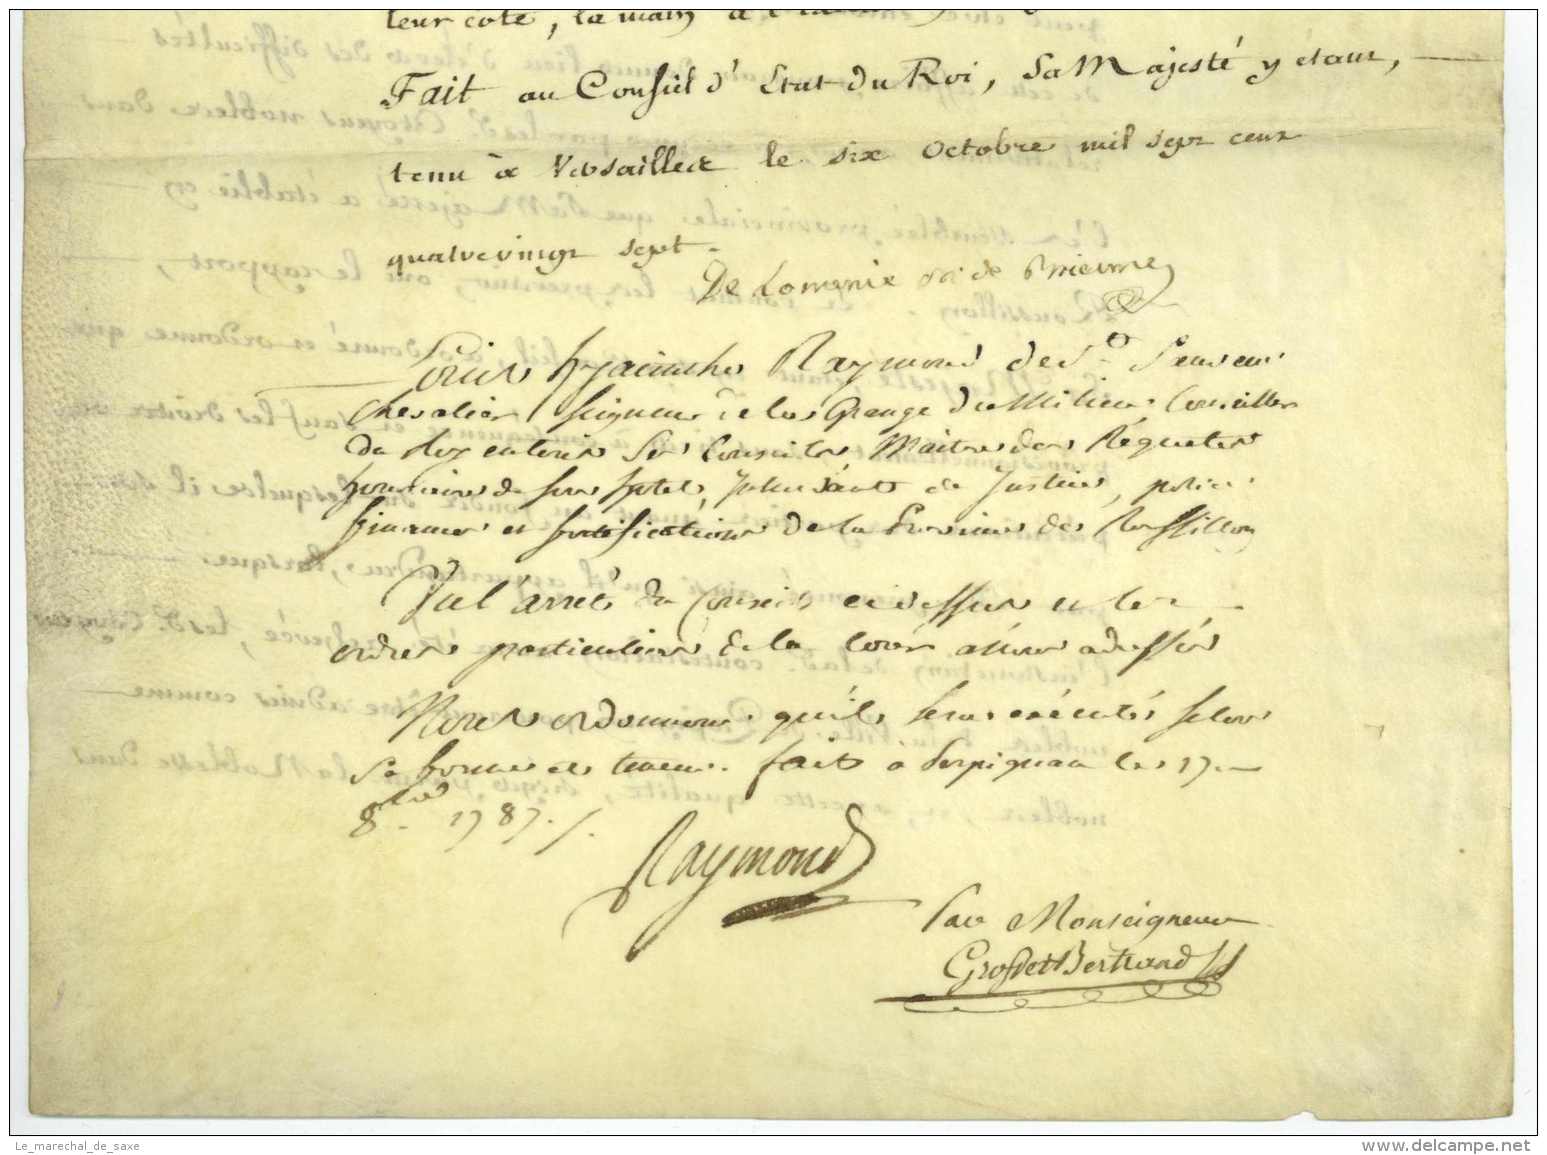 leur coté, la main à l'
Fait au Conseil d'Etat du Roi, Sa Majesté y étant,
tenu à Versailles le six Octobre mil sept cent
quatrevingt sept.
De Lomenie C.te de Brienne
Louis hyacinthe Raymond de S.t Sauveur
Chevalier Seigneur de la Grange du Milieu, Conseiller
du Roy en tous ses Conseils, Maitre des Requetes
honoraire de son hotel, Intendant de Justice, police
finances et fortifications de la Province de Roussillon
Vu l'arrêt du Conseil ci dessus et les
ordres particuliers de la Cour à nous adressés
Nous ordonnons qu'il sera exécuté selon
sa forme et teneur. fait à Perpignan le 17
8bre 1787./.
Raymond
Par Monseigneur
Grosset Bertrand
Le_marechal_de_saxe
www.delcampe.net